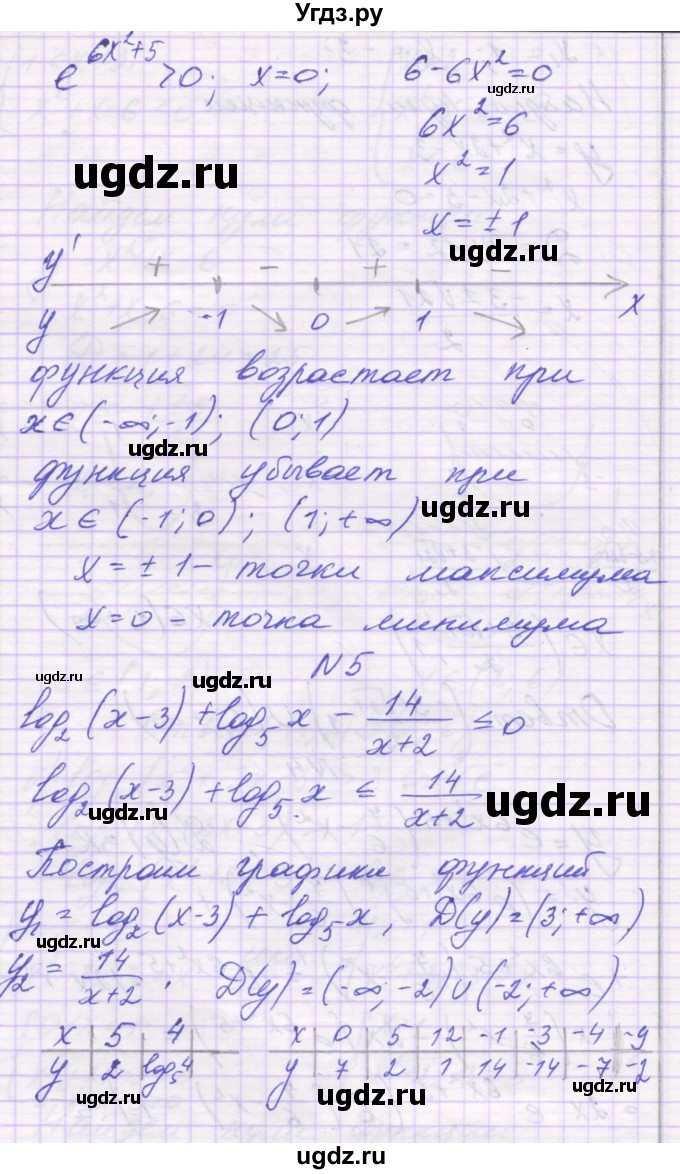 Угдз.ру
e^(6x²+5) >0; x=0; 6-6x²=0
6x²=6
x²=1
x=±1
ugdz.ru
ugdz.ru
ugdz.ru
y' + - + - x
y -1 0 1
функция возрастает при
x∈(-∞;-1); (0;1)
ugdz.ru
функция убывает при
x∈(-1;0); (1;+∞)
ugdz.ru
x=±1 - точки максимума
x=0 - точка минимума
N5
ugdz.ru
ugdz.ru
log₂(x-3)+log₅x - 14/(x+2) ≤0
log₂(x-3)+log₅x ≤ 14/(x+2)
ugdz.ru
ugdz.ru
Построим графики функций
y₁=log₂(x-3)+log₅x, D(y)=(3;+∞)
ugdz.ru
y₂=14/(x+2). D(y)=(-∞;-2)∪(-2;+∞)
x 5 4
y 2 log₅4
x 0 5 12 -1 -3 -4 -9
y 7 2 1 14 -14 -7 -2
ugdz.ru
ugdz.ru
ugdz.ru